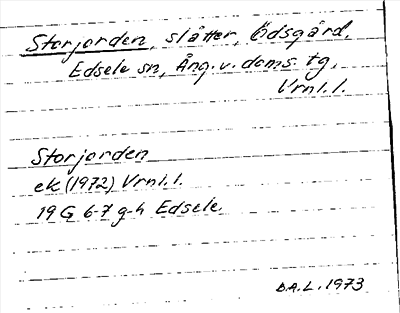 Storjorden, slåtter, Ödsgård,
Edsele sn, Ång. v. doms. tg.
Vrnl.l.
Storjorden
ek (1972) Vrnl.l.
19 G 6-7 g-h Edsele.
D.A.L. 1973